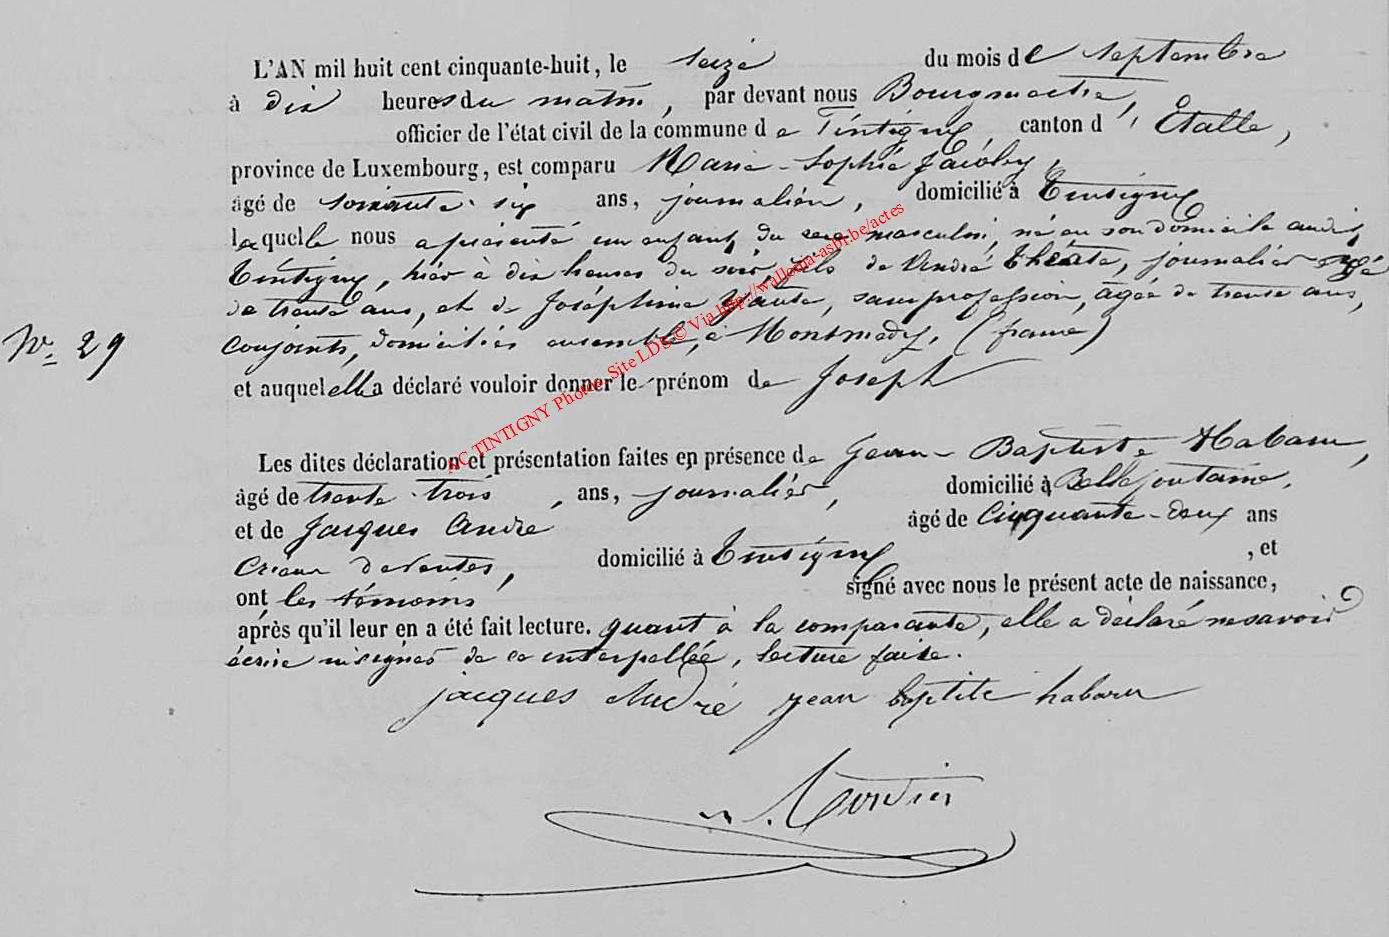 L'AN mil huit cent cinquante-huit, le seize du mois de Septembre
à dix heures du matin, par devant nous Bourgmestre,
officier de l'état civil de la commune de Tintigny canton d'Etalle,
province de Luxembourg, est comparu Marie-Sophie Jacoby,
âgé de soixante-six ans, journalière, domicilié à Tintigny
laquelle nous a présenté un enfant du sexe masculin, né en son domicile audit
Tintigny, hier à dix heures du soir, fils de André journalier âgé
de trente ans, et de Joséphine sans profession, âgée de trente ans,
conjoints, domiciliés ensemble, à Montmédy, (france)
N° 29
et auquel elle a déclaré vouloir donner le prénom de Joseph
Les dites déclaration et présentation faites en présence de Jean-Baptiste Habaru,
âgé de trente-trois, ans, journalier, domicilié à Bellefontaine,
et de Jacques André âgé de Cinquante-deux ans
Crieur de ventes, domicilié à Tintigny, et
ont les témoins signé avec nous le présent acte de naissance,
après qu'il leur en a été fait lecture. quant à la comparante, elle a déclaré ne savoir
écrire ni signer de ce interpellée, lecture faite.
jacques André jean baptite habaru
AC TINTIGNY Photos Site LDS © Via http://wallonia-asbl.be/actes